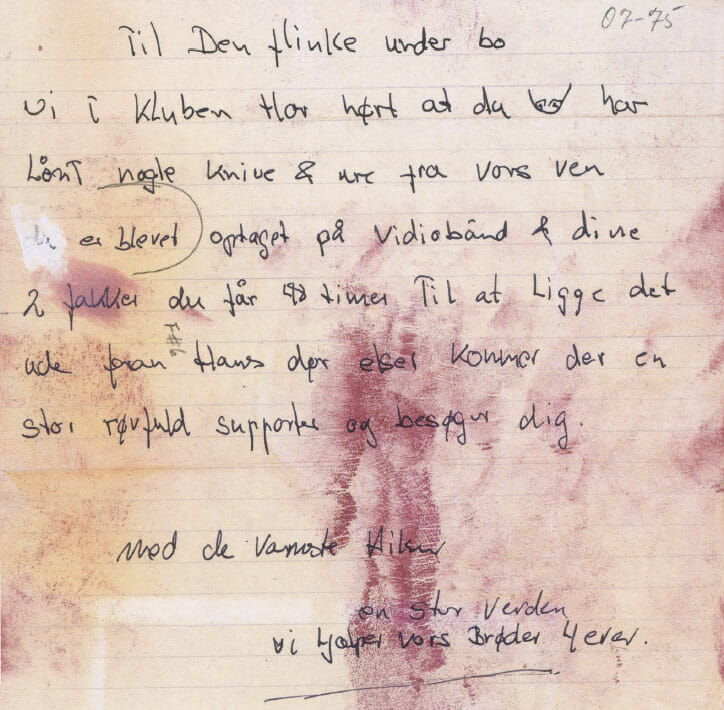 07-75
Til Den flinke under bo
vi i Kluben Har hørt at du har
Lånt nogle knive & ure fra vors ven
du er blevet optaget på Vidiobånd & dine
2 fakker du får 48 timer Til at Ligge det
ude fran Hans dør elser kommer der en
stor røvfuld supporter og besøger dig.
Med de Varmste Hilsner
en stor Verden
vi Hjælper vors Brøder 4 ever.